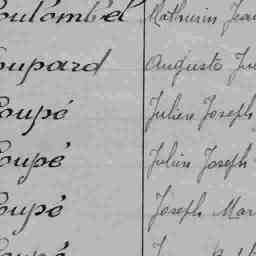 oulombel Mathurin Jea
oupard Auguste Ju
Coupé Julien Joseph
Coupé Julien Joseph
Coupé Joseph Mar
Coupé